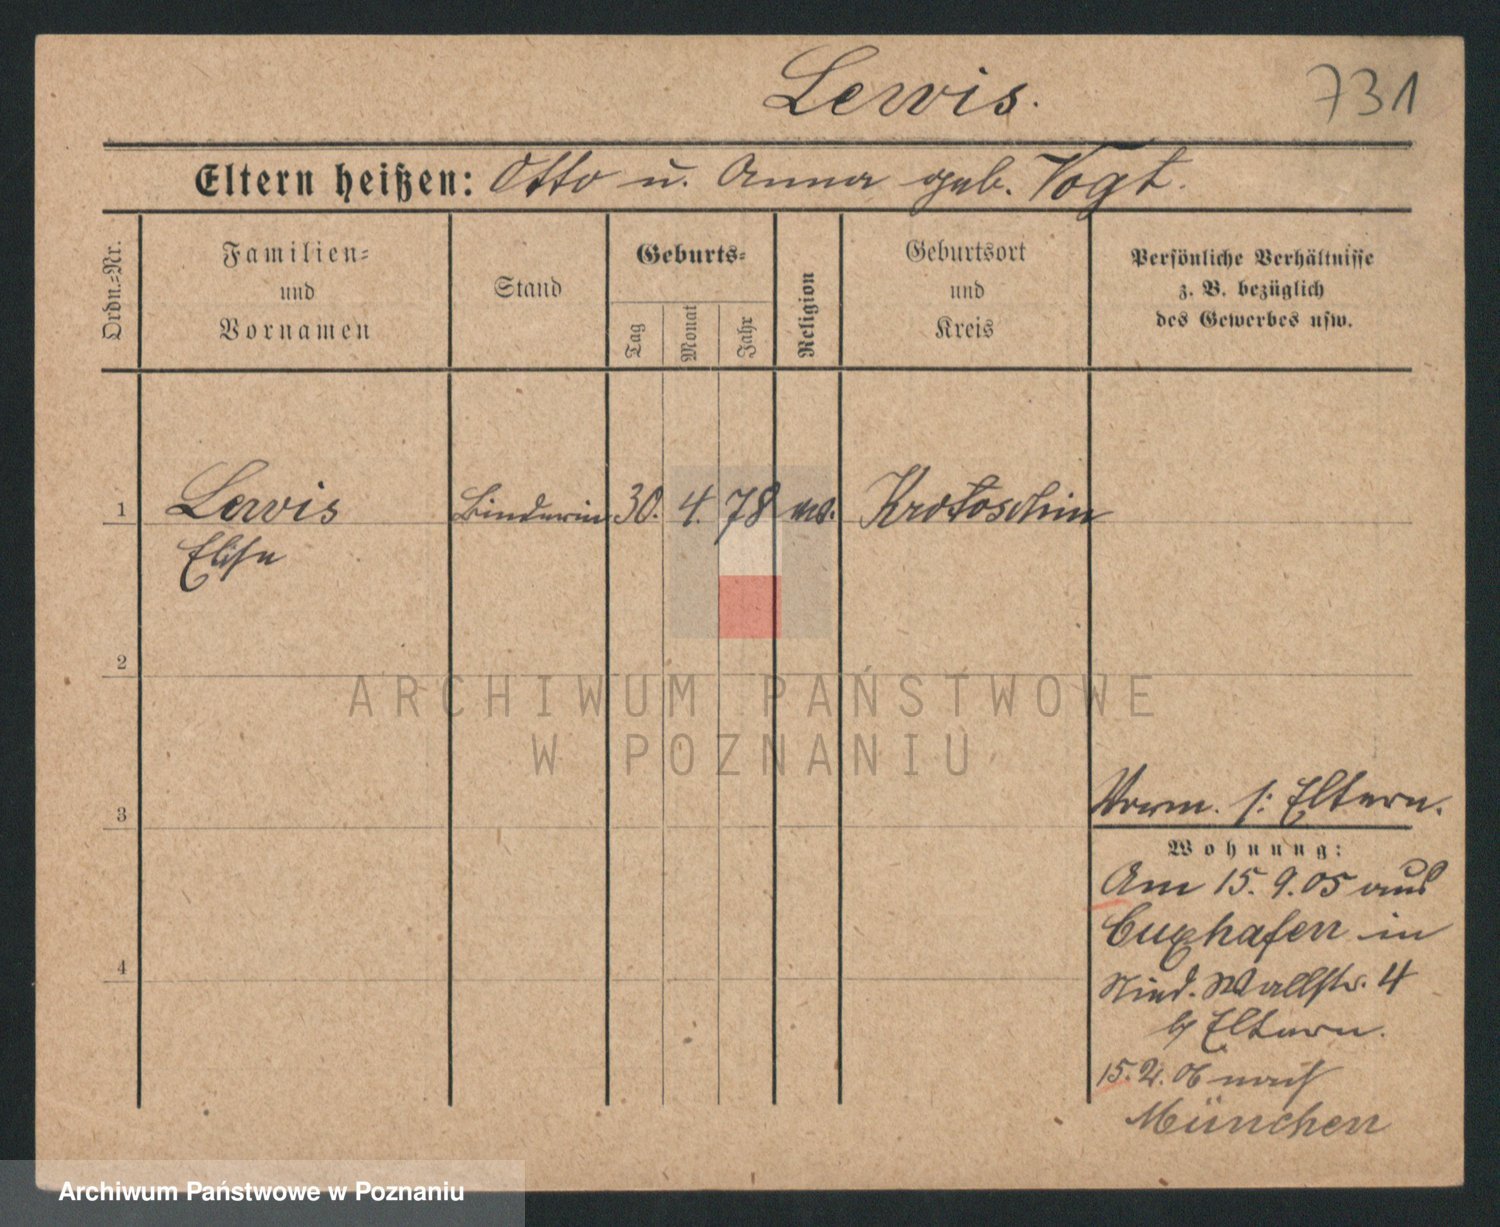 Lewis.
731
Eltern heißen: Otto u. Anna geb. Vogt.
Ordn.-Nr.
Familien-
und
Vornamen
Stand
Geburts-
Tag
Monat
Jahr
Religion
Geburtsort
und
Kreis
Persönliche Verhältnisse
z. B. bezüglich
des Gewerbes usw.
1
Lewis
Elise
Binderin
30. 4. 78
Krotoschin
2
ARCHIWUM PAŃSTWOWE
W POZNANIU
3
Vorm. s: Eltern.
Wohnung:
Am 15. 9. 05 aus
Cuxhafen in
4
Nied. Wallstr. 4
b/ Eltern.
15. 2. 06 nach
München
Archiwum Państwowe w Poznaniu